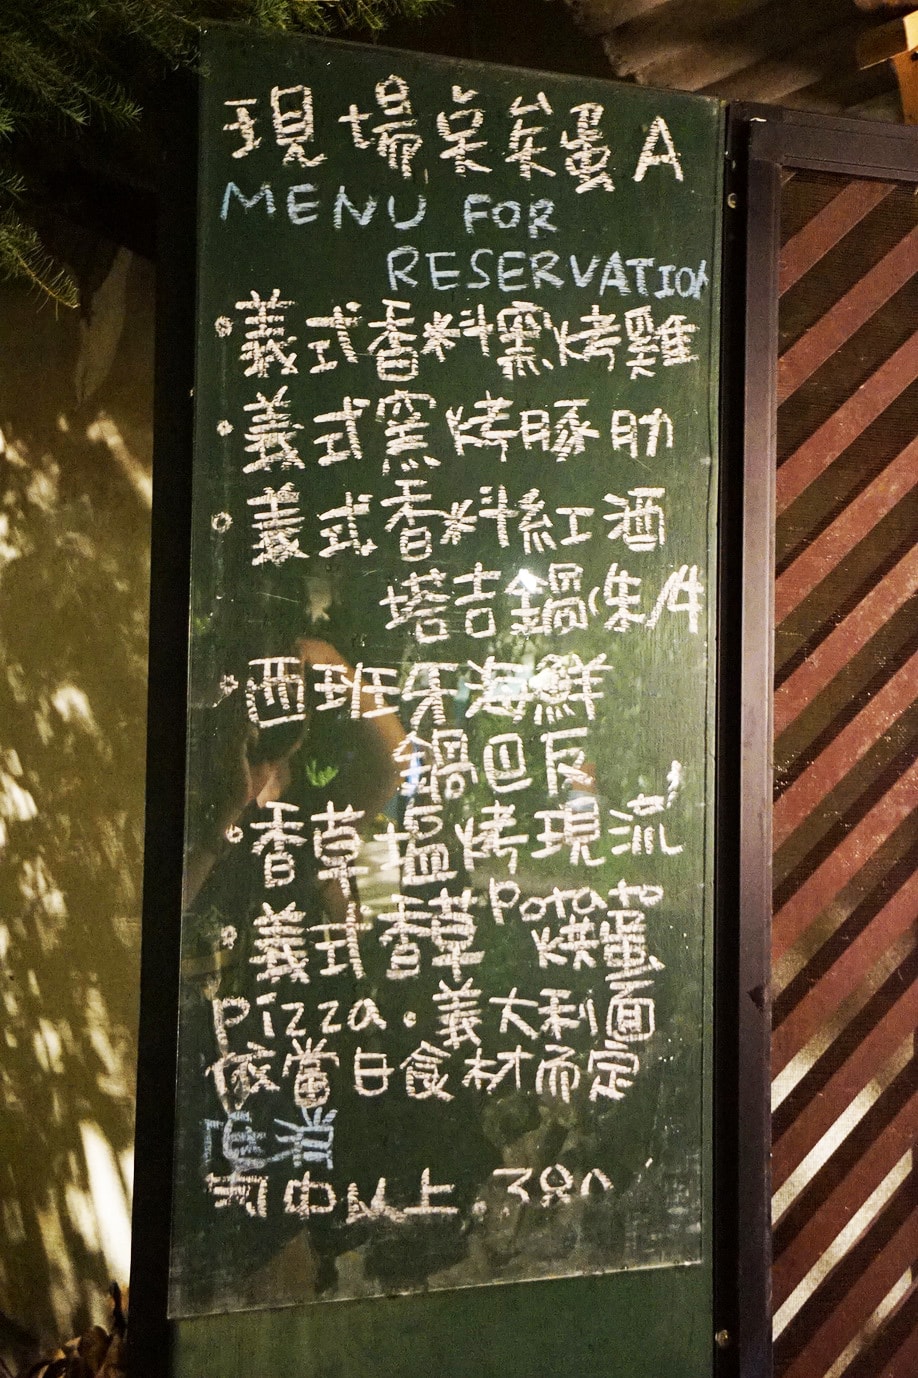 現場菜單 A
MENU FOR
RESERVATION
。義式香料窯烤雞
・義式窯烤豚肋
。義式香料紅酒
塔吉鍋(朱/牛
・西班牙海鮮
鍋回反
・香草塩烤現流
・義式香草 Pota烘蛋
pizza・義大利面
依當日食材而定
中以上